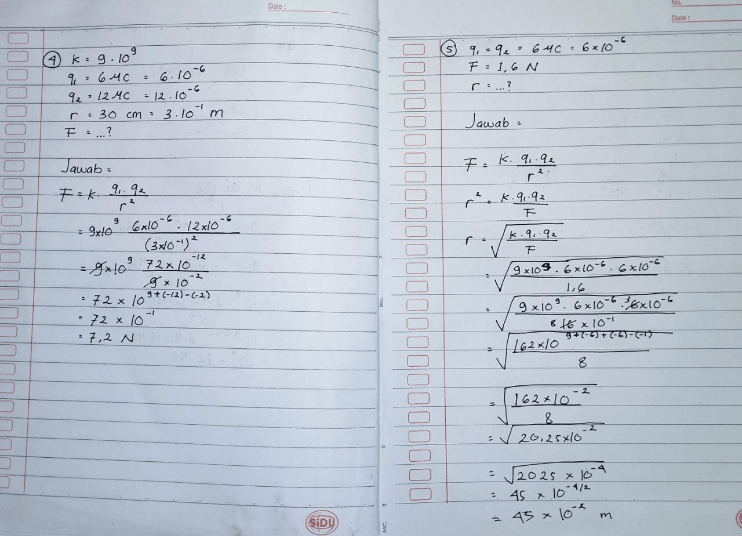 Date :
④ K = 9 . 10⁹
q₁ = 6 μC = 6 . 10⁻⁶
q₂ = 12 μC = 12 . 10⁻⁶
r = 30 cm = 3 . 10⁻¹ m
F = ...?
Jawab =
F = K . q₁ . q₂ / r²
= 9x10⁹ 6x10⁻⁶ . 12x10⁻⁶ / (3x10⁻¹)²
= 9x10⁹ 72 x 10⁻¹² / 9 x 10⁻²
= 72 x 10⁹⁺⁽⁻¹²⁾⁻⁽⁻²⁾
= 72 x 10⁻¹
= 7,2 N
SiDU
No.
Date :
⑤ q₁ = q₂ = 6 μC = 6x10⁻⁶
F = 1,6 N
r = ...?
Jawab =
F = K. q₁ . q₂ / r²
r² = K . q₁ . q₂ / F
r = √(K . q₁ . q₂ / F)
= √(9x10⁹ . 6x10⁻⁶ . 6x10⁻⁶ / 1,6)
= √(9x10⁹ . 6x10⁻⁶ . ³6x10⁻⁶ / 8 16 x 10⁻¹)
= √(162x10⁹⁺⁽⁻⁶⁾⁺⁽⁻⁶⁾⁻⁽⁻¹⁾ / 8)
= √(162x10⁻² / 8)
= √20,25x10⁻²
= √2025 x 10⁻⁴
= 45 x 10⁻⁴/²
= 45 x 10⁻² m